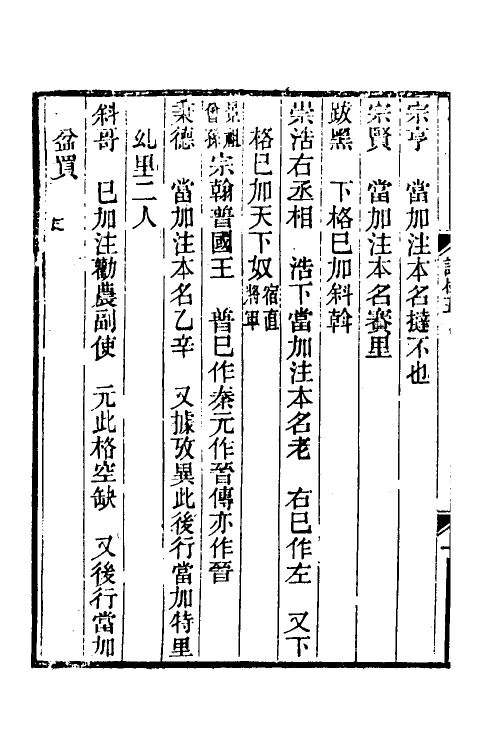 宗亨　當加注本名撻不也
宗賢　當加注本名賽里
跋黑　下格巳加斜斡
崇浩右丞相　浩下當加注本名老　右巳作左　又下
格巳加天下奴宿直將軍
景祖曾孫宗翰晉國王　晉巳作秦元作晉傳亦作晉
秉德　當加注本名乙辛　又據攷異此後行當加特里
乣里二人
斜哥　巳加注勸農副使　元此格空缺　又後行當加
盆買